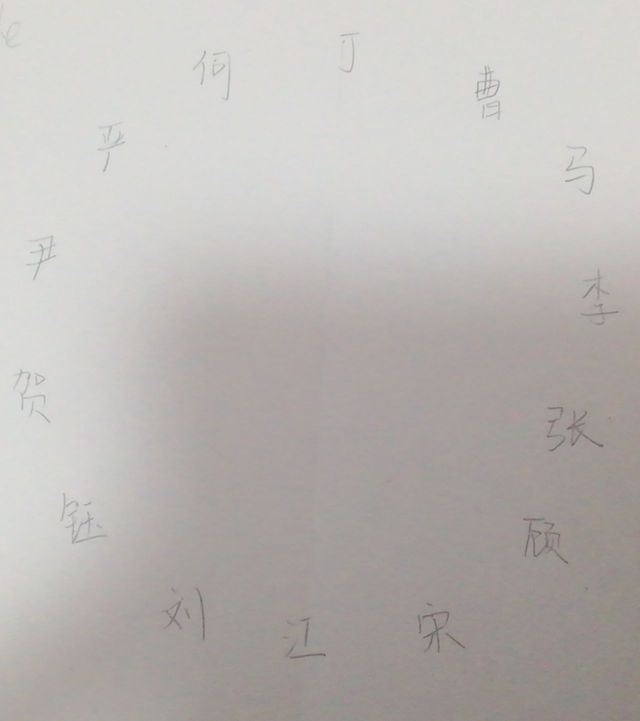 丁
曹
马
李
张
顾
宋
江
刘
钰
贺
尹
严
何